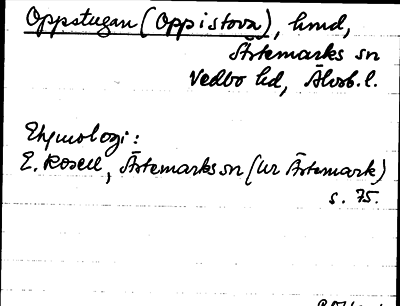 Oppstugan (Oppistova), hmd,
Ärtemarks sn
Vedbo hd, Älvsb. l.
Etymologi:
E. Rosell, Ärtemarks sn (ur Ärtemark)
s. 75.